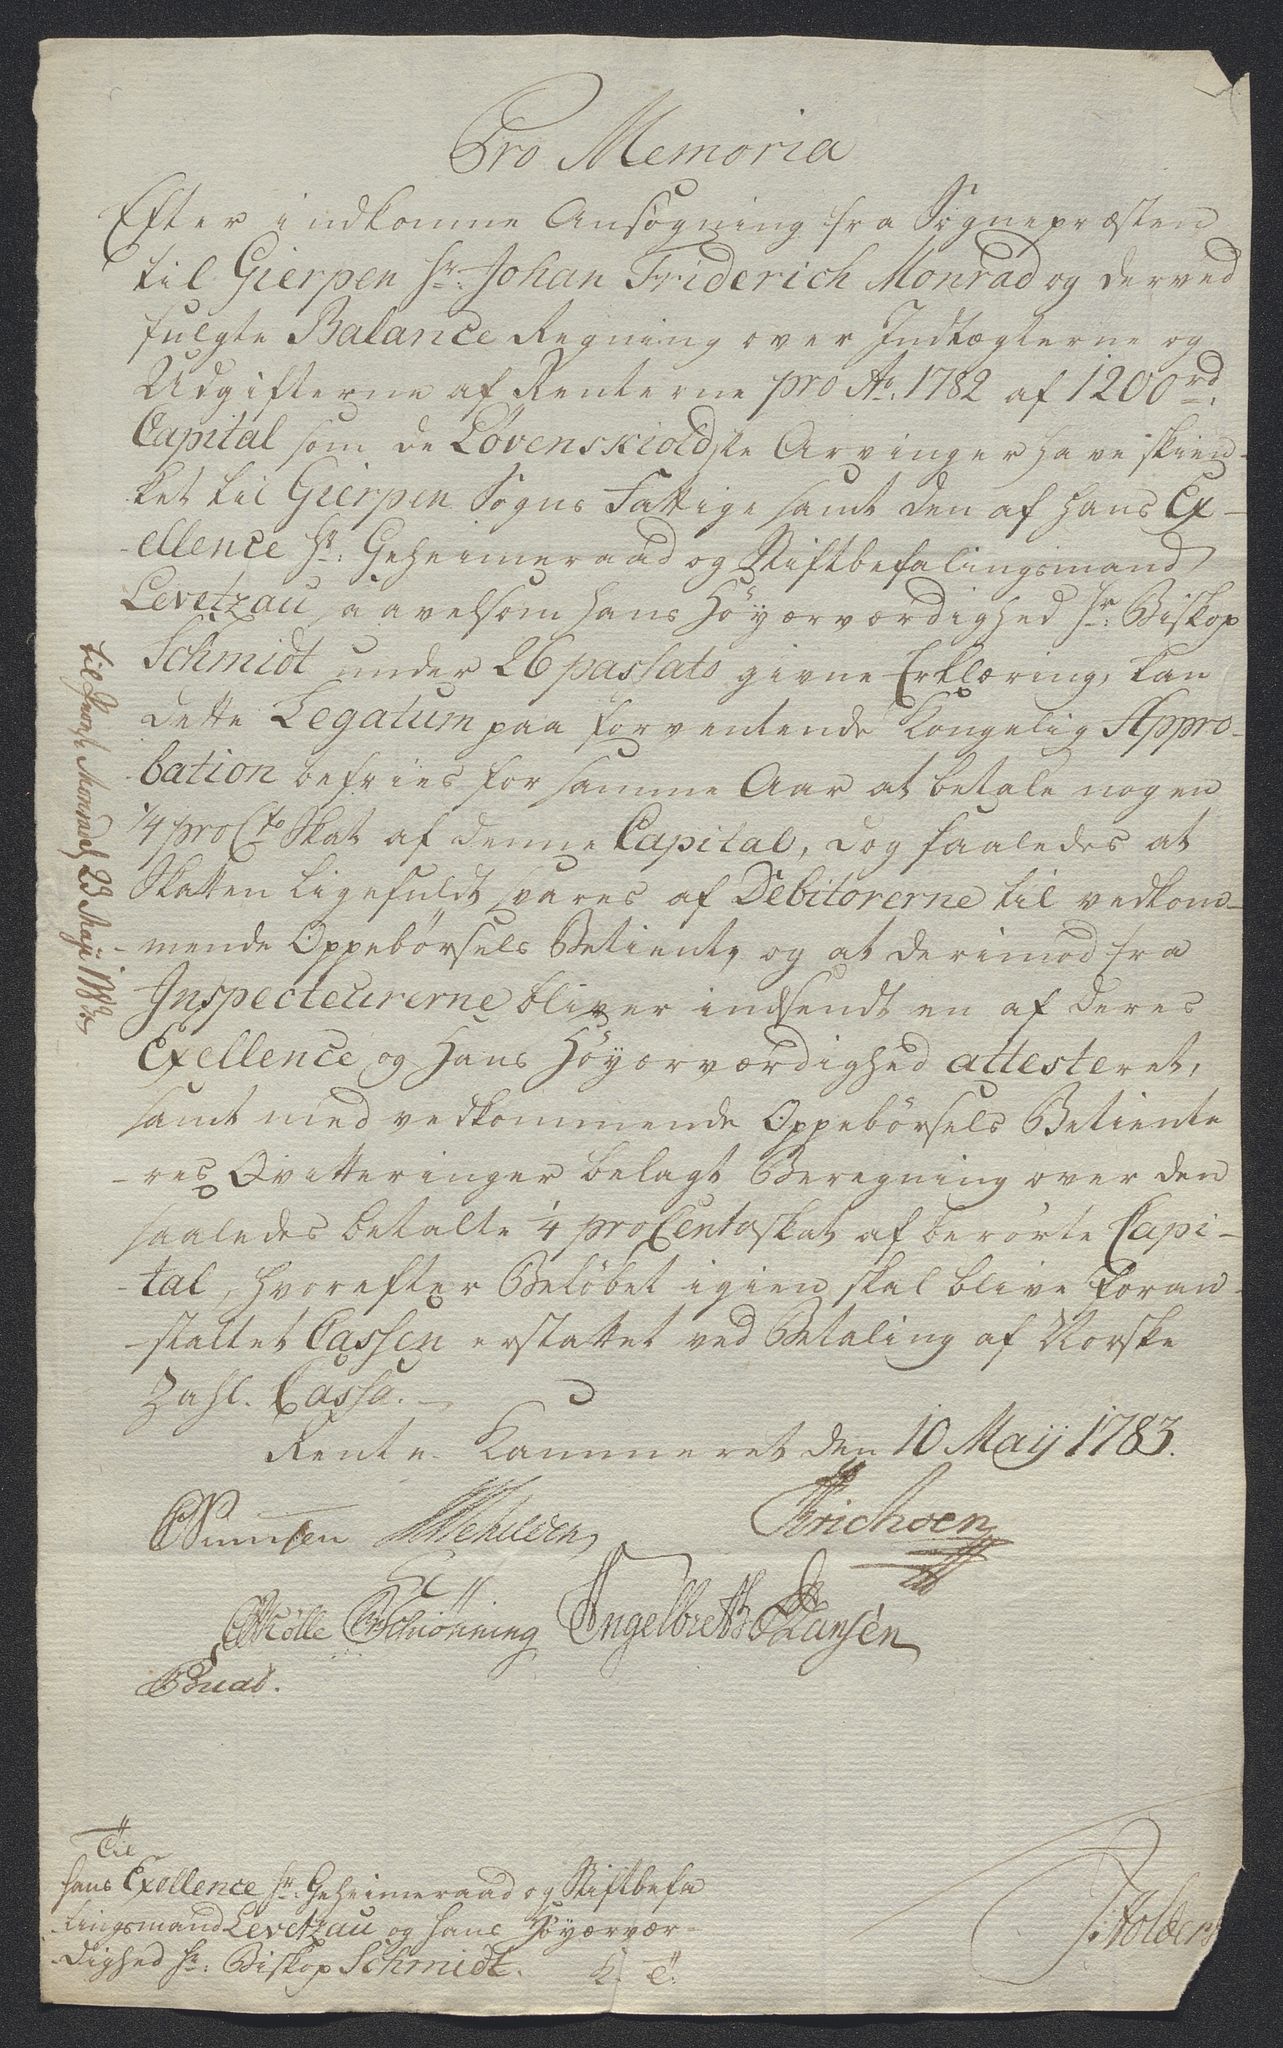 Pro Memoria
Efter indkomne Ansøgning fra Sognepræsten
til Gierpen Hr: Johan Friderich Monrad og derved
fulgte Balance Regning over Indtægterne og
Udgifterne af Renterne pro Ao. 1782 af 1200 rd.
Capital som de Løvenskioldske Arvinger have skien-
ket til Gierpen Sogns Fattige samt den af Hans Ex-
-ellence Hr: Geheimeraad og Stiftbefalingsmand
Levetzau, saavelsom Hans Höyærværdighed Hr: Biskop
Schmidt under 26 passato givne Erklæring, kan
dette Legatum paa forventende Kongelig Appro-
-bation befries for samme Aar at betale nogen
1/4 pro Cto Skat af denne Capital, dog saaledes at
Skatten ligefuldt svares af Debitorerne til vedkom-
-mende Oppebörsels Betiente, og at derimod fra
Inspecteurerne bliver indsendt en af Deres
Exellence og Hans Höyærværdighed attesteret,
samt med vedkommende Oppebörsels Betiente
-res Qvitteringer belagt Beregning over den
saaledes betalte 1/4 pro Cento skat af berörte Capi-
-tal, hvorefter Belöbet igien skal blive foran-
-staltet Cassen erstattet ved Betaling af Norske
Zahl. Cassa.-
Rente Kammeret den 10 Maij 1783.
Erichsen
Mölle Schiönning Engelbreth Hansén
Til
Hans Exellence Hr: Geheimeraad og Stiftbefa
lingsmand Levetzau og Hans Höyærvær-
-dighed Hr: Biskop Schmidt.
K. T:
Holders
til Monrad 23 Maji